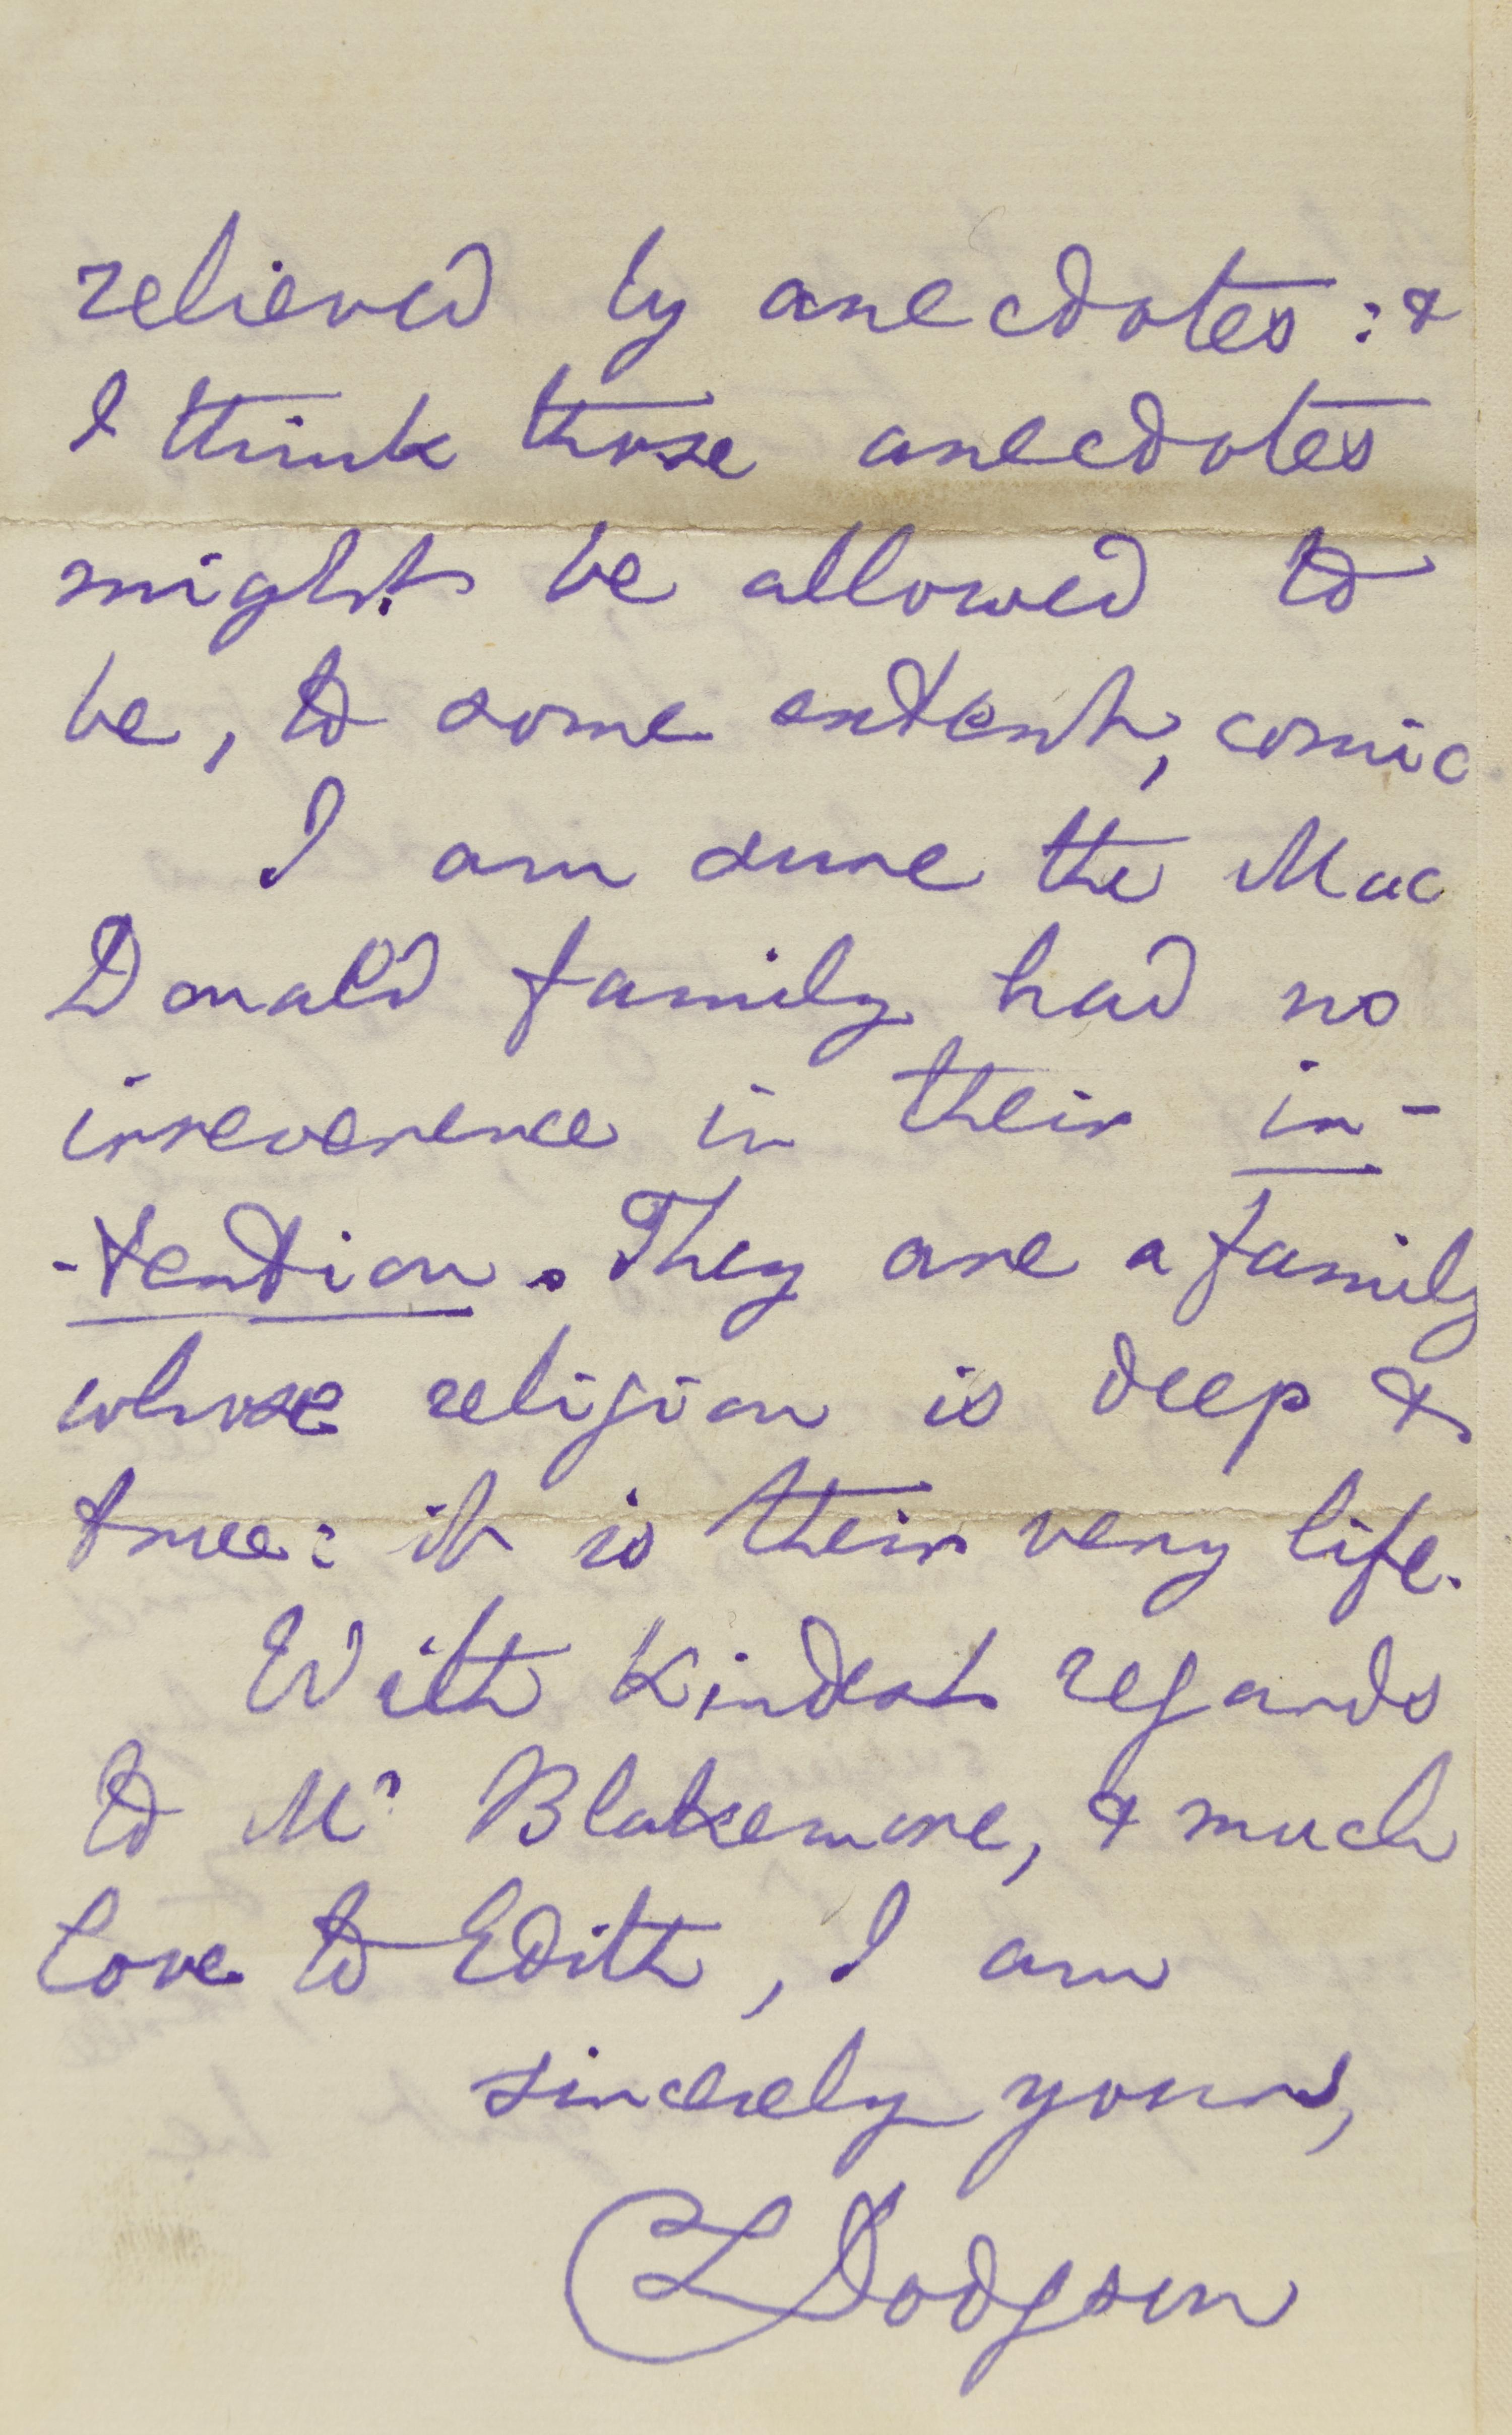 relieved by anecdotes: &
I think those anecdotes
might be allowed to
be, to some extent, comic
I am sure the Mac
Donald family had no
irreverence in their in-
-tention. They are a family
whose religion is deep &
true: it is their very life.
With kindest regards
to Mr Blakemore, & much
love to Edith, I am
sincerely yours,
CLDodgson